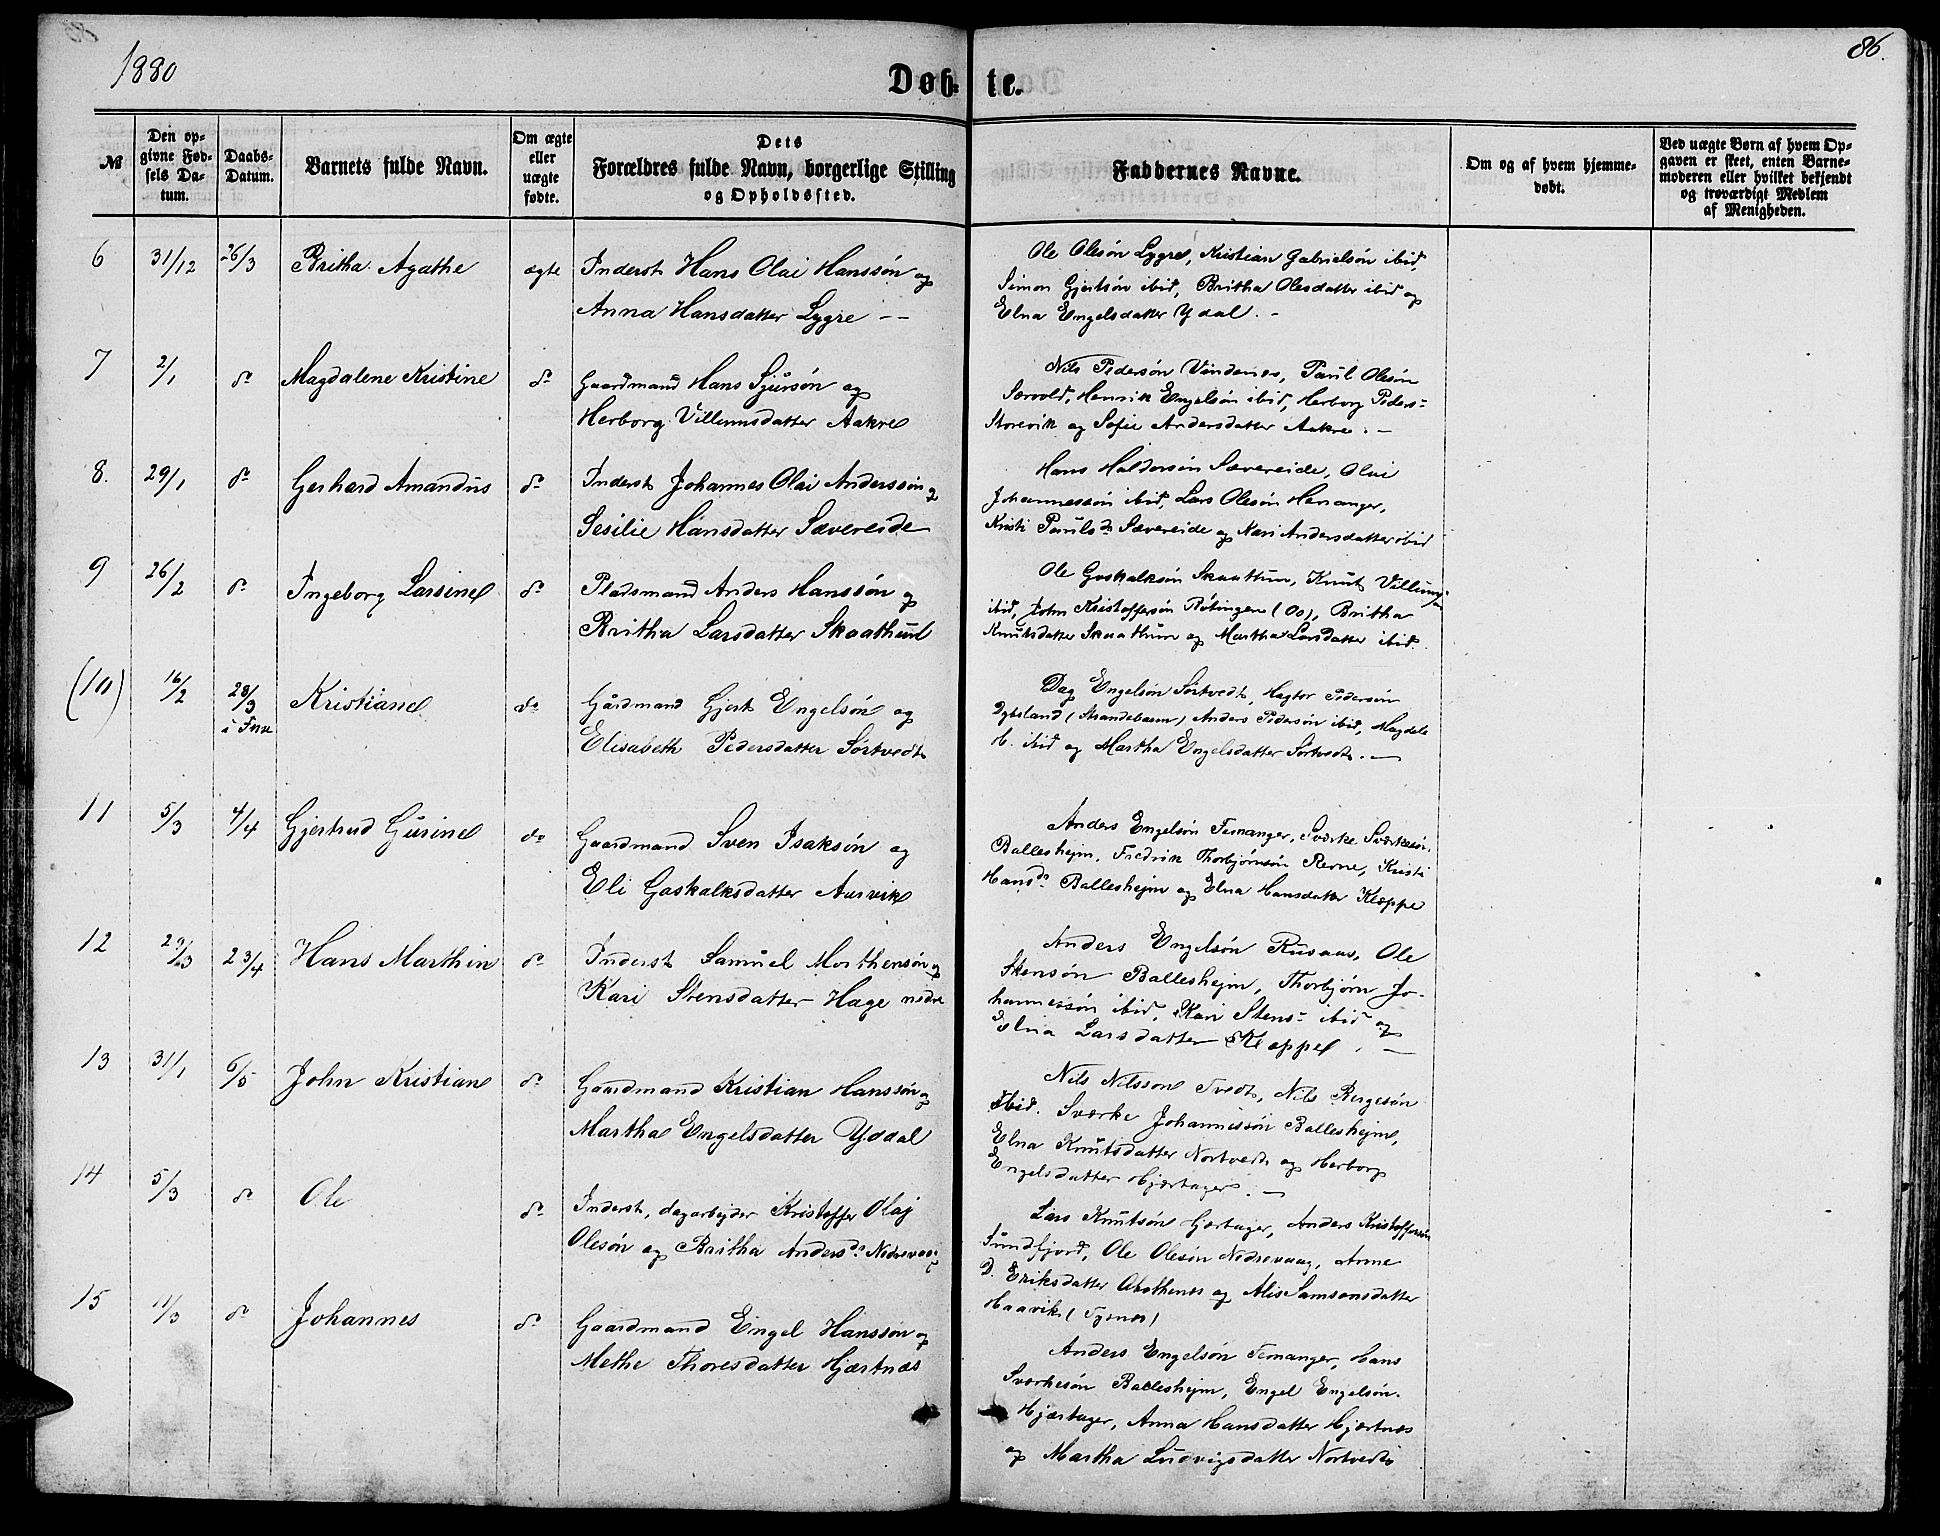 1880
86.
Døbte.
№
Den opgivne Fødsels Datum.
Daabs-Datum.
Barnets fulde Navn.
Om ægte eller uægte fødte.
Dets Forældres fulde Navn, borgerlige Stilling og Opholdssted.
Faddernes Navne.
Om og af hvem hjemmedøbt.
Ved uægte Børn af hvem Opgaven er skeet, enten Barnemoderen eller hvilket bekjendt og troværdigt Medlem af Menigheden.
6 31/12 26/3 Britha Agathe ægte Inderst Hans Olai Hanssøn og
Anna Hansdatter Lygre
Ole Olesøn Lygre, Kristian Gabrielsøn ibid,
Simon Gjertsøn ibid, Britha Olesdatter ibid og
Elna Engelsdatter Ydal.
7 2/1 do Magdalene Kristine do Gaardmand Hans Sjursøn og
Herborg Villumsdatter Aakre
Nils Pedersøn Vindenes, Paul Olesøn
Sævold, Henrik Engelsøn ibid, Herborg Peders-
Storevik og Sofie Andersdatter Aakre.
8. 29/1 do Gerhard Amandus do Inderst Johannes Olai Anderssøn og
Sesilie Hansdatter Sævereide
Hans Haldorsøn Sævereide, Olai
Johannessøn ibid, Lars Olesøn Henanger,
Kristi Paulsdr Sævereide og Kari Andersdatter ibid
9 26/2 do Ingeborg Larsine do Pladsmand Anders Hanssøn og
Britha Larsdatter Skaathun
Ole Goskalksøn Skaathun, Knut Villumsøn
ibid, John Kristoffersøn Røtingen (Os), Britha
Knutsdatter Skaathun og Martha Larsdatter ibid.
(10) 16/2 28/3 i Fuse Kristiane do Gårdmand Gjert Engelsøn og
Elisabeth Pedersdatter Sørtvedt
Dag Engelsøn Sørtvedt, Hagtor Pedersøn
Dybsland (Strandebarm) Anders Pedersøn ibid, Magdele
H. ibid og Martha Engelsdatter Sørtvedt.
11 5/3 4/4 Gjertrud Gurine do Gaardmand Sven Isaksøn og
Eli Goskalksdatter Aarvik
Anders Engelsøn Femanger, Sværke Sværkesøn
Ballesheim, Fredrik Thorbjørnsøn Revne, Kristi
Hansdr Ballesheim og Elna Hansdatter Kleppe
12 29/3 23/4 Hans Marthin do Inderst Samuel Morthensøn og
Kari Stensdatter Hage nedre
Anders Engelsøn Rusaas, Ole
Stensøn Ballesheim, Thorbjørn Jo-
hannessøn ibid, Kari Stens- ibid og
Elna Larsdatter Kleppe.
13 31/1 6/5 John Kristian do Gaardmand Kristian Hanssøn og
Martha Engelsdatter Yddal
Nils Nilsson Tvedt, Nils Bergesøn
Ibid. Sværke Johannessøn Ballesheim,
Elna Knutsdatter Nortvedt og Herborg
Engelsdatter Hjærtager.
14 5/3 do Ole do Inderst, dagarbejder Kristoffer Olaj
Olesøn og Britha Andersdr Nedrevaag
Lars Knutsøn Hjærtager, Anders Kristoffersøn
Sundfjord, Ole Olesøn Nedrevaag, Anne
D. Eriksdatter og Alis Samsonsdatter
Haavik (Tysnes)
15 11/3 do Johannes do Gaardmand Engel Hanssøn og
Methe Thoresdatter Hjærtnæs
Anders Engelsøn Femanger, Hans
Sværkesøn Ballesheim, Engel Engelsøn
Hjærtager, Anna Hansdatter Hjærtnæs
og Martha Ludvigsdatter Nortvedt